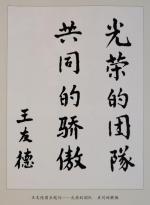 光荣的团隊
共同的骄傲
王友德